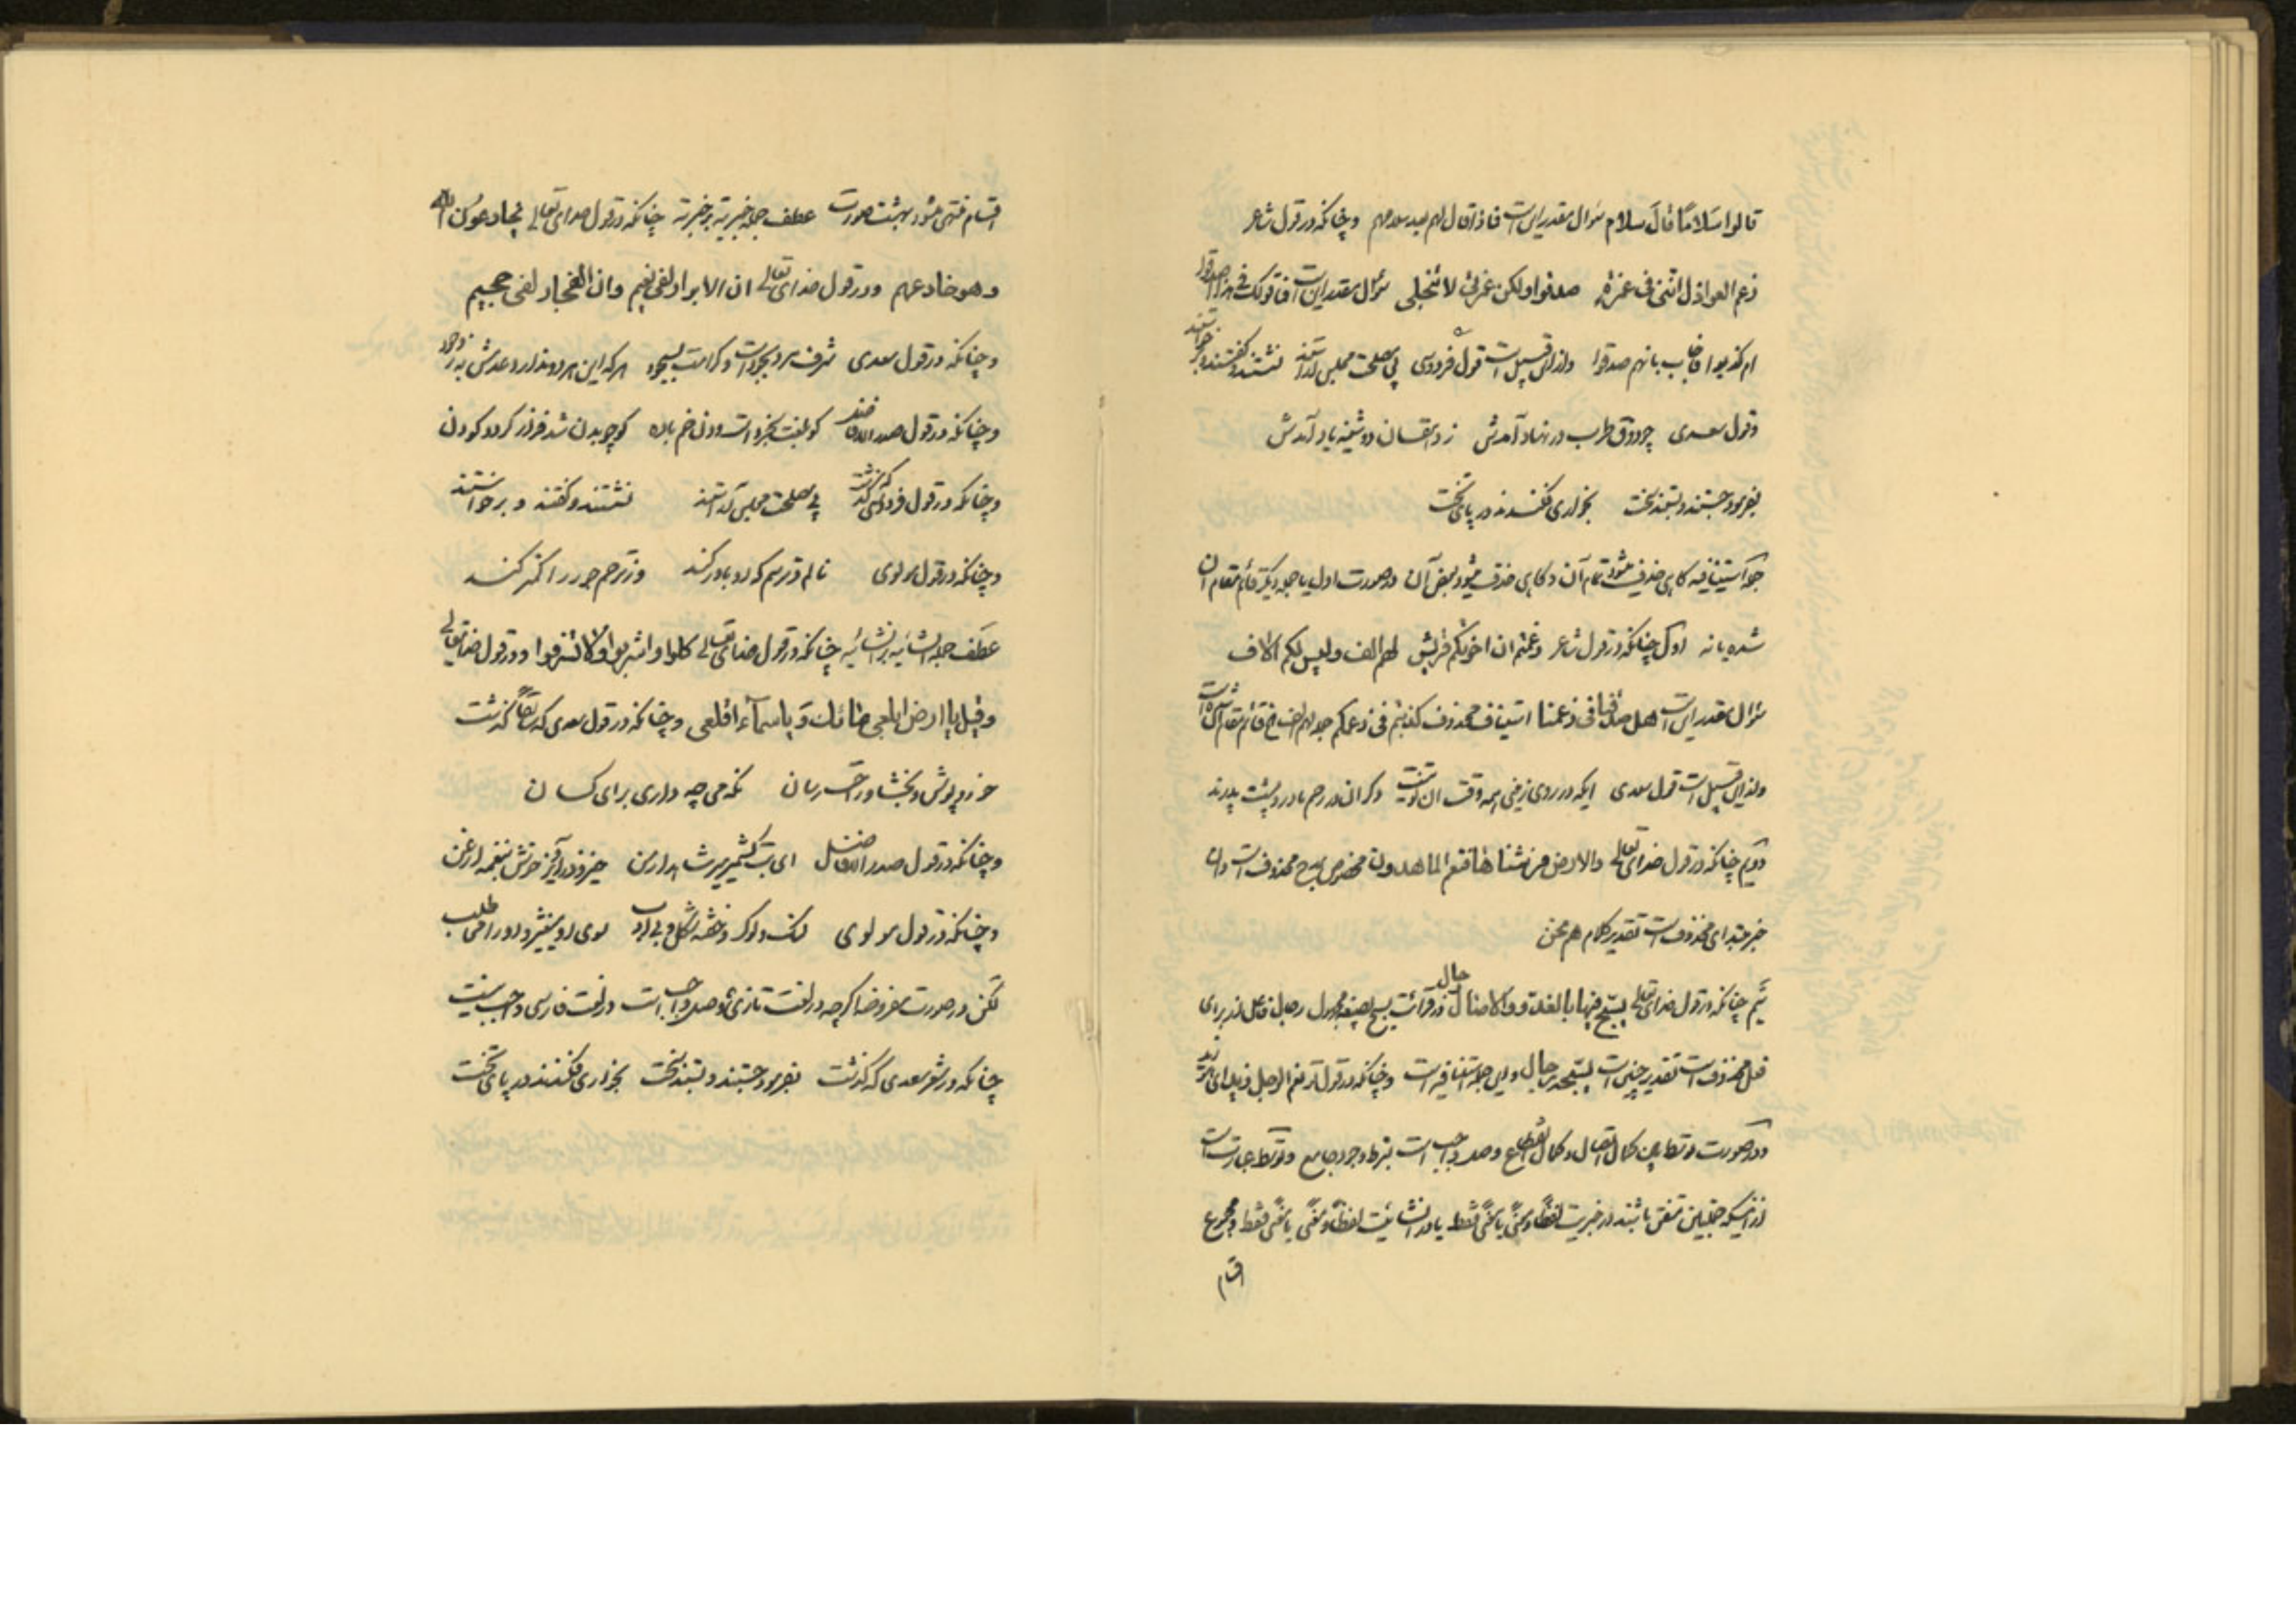 قالوا سَلامًا قالَ سلام سؤال مقدر این است فماذا قال لهم بعد سلامهم وچنانکه در قول شاعر
زعم العواذل اننی فی غمرة صدقوا ولکن غمرتی لا تنجلی سؤال مقدر این است فما قولک فی هذا اصدقوا
ام کذبوا فاجاب بانهم صدقوا و از این قبیل است قول فردوسی پی مصلحت مجلس آراستند نشستند و گفتند و برخواستند
وقول سعدی چو ذوق طرب در نهاد آمدش ز دهقان دوشینه یاد آمدش
بفرمود جستند و بستند سخت بخواری فکندند در پای تخت
جمله استینافیه گاهی حذف میشود تمام آن و گاهی حذف میشود بعض آن در صورت اول یا جمله دیگر قائم مقام آن
شده یا نه اول چنانکه در قول شاعر زعمتم ان اخوتکم قریش لهم الف ولیس لکم الاف
سؤال مقدر این است هل صدقنا فی زعمنا استیناف محذوف کذبتم فی زعمکم جمله لهم الف الخ قائم مقام آن شده است
و از این قبیل است قول سعدی ایکه در روی زمینی همه وقت آن تو نیست دگران در رحم مادر و پشت پدرند
دویم چنانکه در قول خدای تعالی والارض فرشناها فنعم الماهدون مخصوص بمدح محذوف است و آن
خبر مبتدای محذوف است تقدیر کلام هم نحن
سیم چنانکه در قول خدای تعالی یسبح فیها بالغدو والاصال رجال در قرائت یسبح بصیغه مجهول رجال فاعل است برای
فعل محذوف است تقدیر چنین است یسبحه رجال و این جمله استینافیه است وچنانکه در قول تو نعم الرجل زید برای
ودر صورت توسط بین کمال اتصال و کمال انقطاع وصل واجب است بشرط وجود جامع و توسط عبارت است
از اینکه جملتین متفق باشند در خبریت لفظًا ومعنًی یا معنًی فقط یا در انشائیت لفظًا ومعنًی یا معنًی فقط ومجموع
اقسام
اقسام منتهی میشود بهشت صورت عطف جمله خبریه بر خبریه چنانکه در قول خدای تعالی یخادعون الله
وهو خادعهم ودر قول خدای تعالی ان الابرار لفی نعیم وان الفجار لفی جحیم
وچنانکه در قول سعدی شرف مرد بجود است و کرامت بسجود هر که این هر دو ندارد عدمش به ز وجود
وچنانکه در قول صدر الافاضل
وچنانکه در قول فردوسی که گذشت پی مصلحت مجلس آراستند نشستند و گفتند و برخواستند
وچنانکه در قول مولوی نالم و ترسم که او باور کند وز ترحم جور را کمتر کند
عطف جمله انشائیه بر انشائیه چنانکه در قول خدای تعالی کلوا واشربوا ولا تسرفوا ودر قول خدای تعالی
وقیل یا ارض ابلعی مائک ویا سمآء اقلعی وچنانکه در قول سعدی که سابقًا گذشت
خور و پوش و بخشا و راحت رسان نگه می چه داری برای کسان
وچنانکه در قول صدر الافاضل ای بت کشمیر
وچنانکه در قول مولوی لنگ و لوک و خفته شکل و بی ادب سوی او میغیژ و او را می طلب
لکن در صورت مفروضه اگر چه در لغت تازی وصل واجب است در لغت فارسی واجب نیست
چنانکه در شعر سعدی که گذشت بفرمود جستند و بستند سخت بخواری فکندند در پای تخت